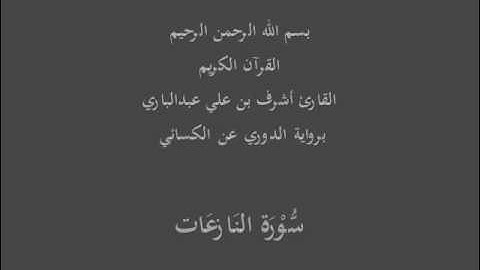 بسم الله الرحمن الرحيم
القرآن الكريم
القارئ أشرف بن علي عبدالباري
برواية الدوري عن الكسائي
سُّوْرَة النَازعَات